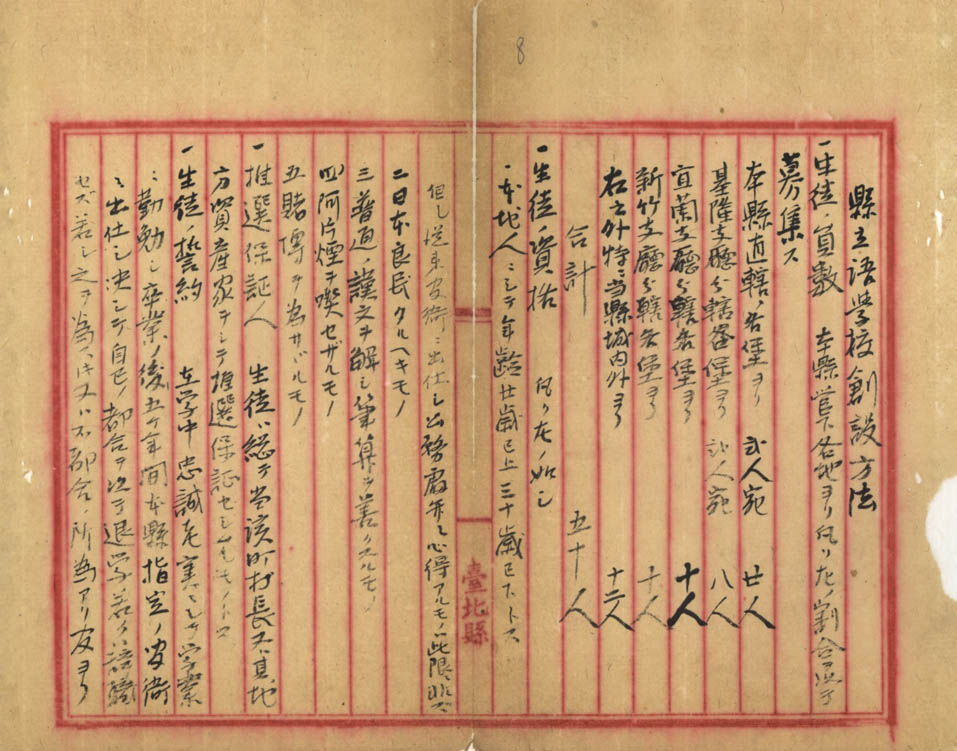 8
縣立語學校創設方法
一生徒ノ員數 本縣管下各地ヨリ凡リ左ノ割合ヲ以テ
募集ス
本縣直轄ノ各堡ヨリ 弐人宛 廿人
基隆支廳分轄各堡ヨリ 弐人宛 八人
宜蘭支廳分轄各堡ヨリ 十人
新竹支廳分轄各堡ヨリ 十人
右之外特ニ当縣城内外ヨリ 十二人
合計 五十人
一生徒ノ資格 凡リ左ノ如シ
一本地人ニシテ年齡廿歳已上三十歳已下トス
但シ從来官衙ニ出仕シ公務 心得アルモノハ此限ニ非ズ
二日本良民タルヘキモノ
三普通ノ漢文ヲ解シ筆算ヲ善クスルモノ
四阿片煙ヲ喫セザルモノ
五賭博ヲ為サバルモノ
一推選保証人 生徒ハ総テ当該町村長又ハ其地
方資産家ヲシテ推選保証セシムモノトス
一生徒ノ誓約 在学中忠誠ヲ実ニシテ学業
ニ勤勉シ卒業ノ後五ケ年間本縣指定ノ官衙
ニ出仕シ決シテ自己ノ都合ヲ以テ退学若クハ辞職
セズ若シ之ヲ為スヘキ又ハ不都合ノ所為アリ官ヨリ
臺北縣